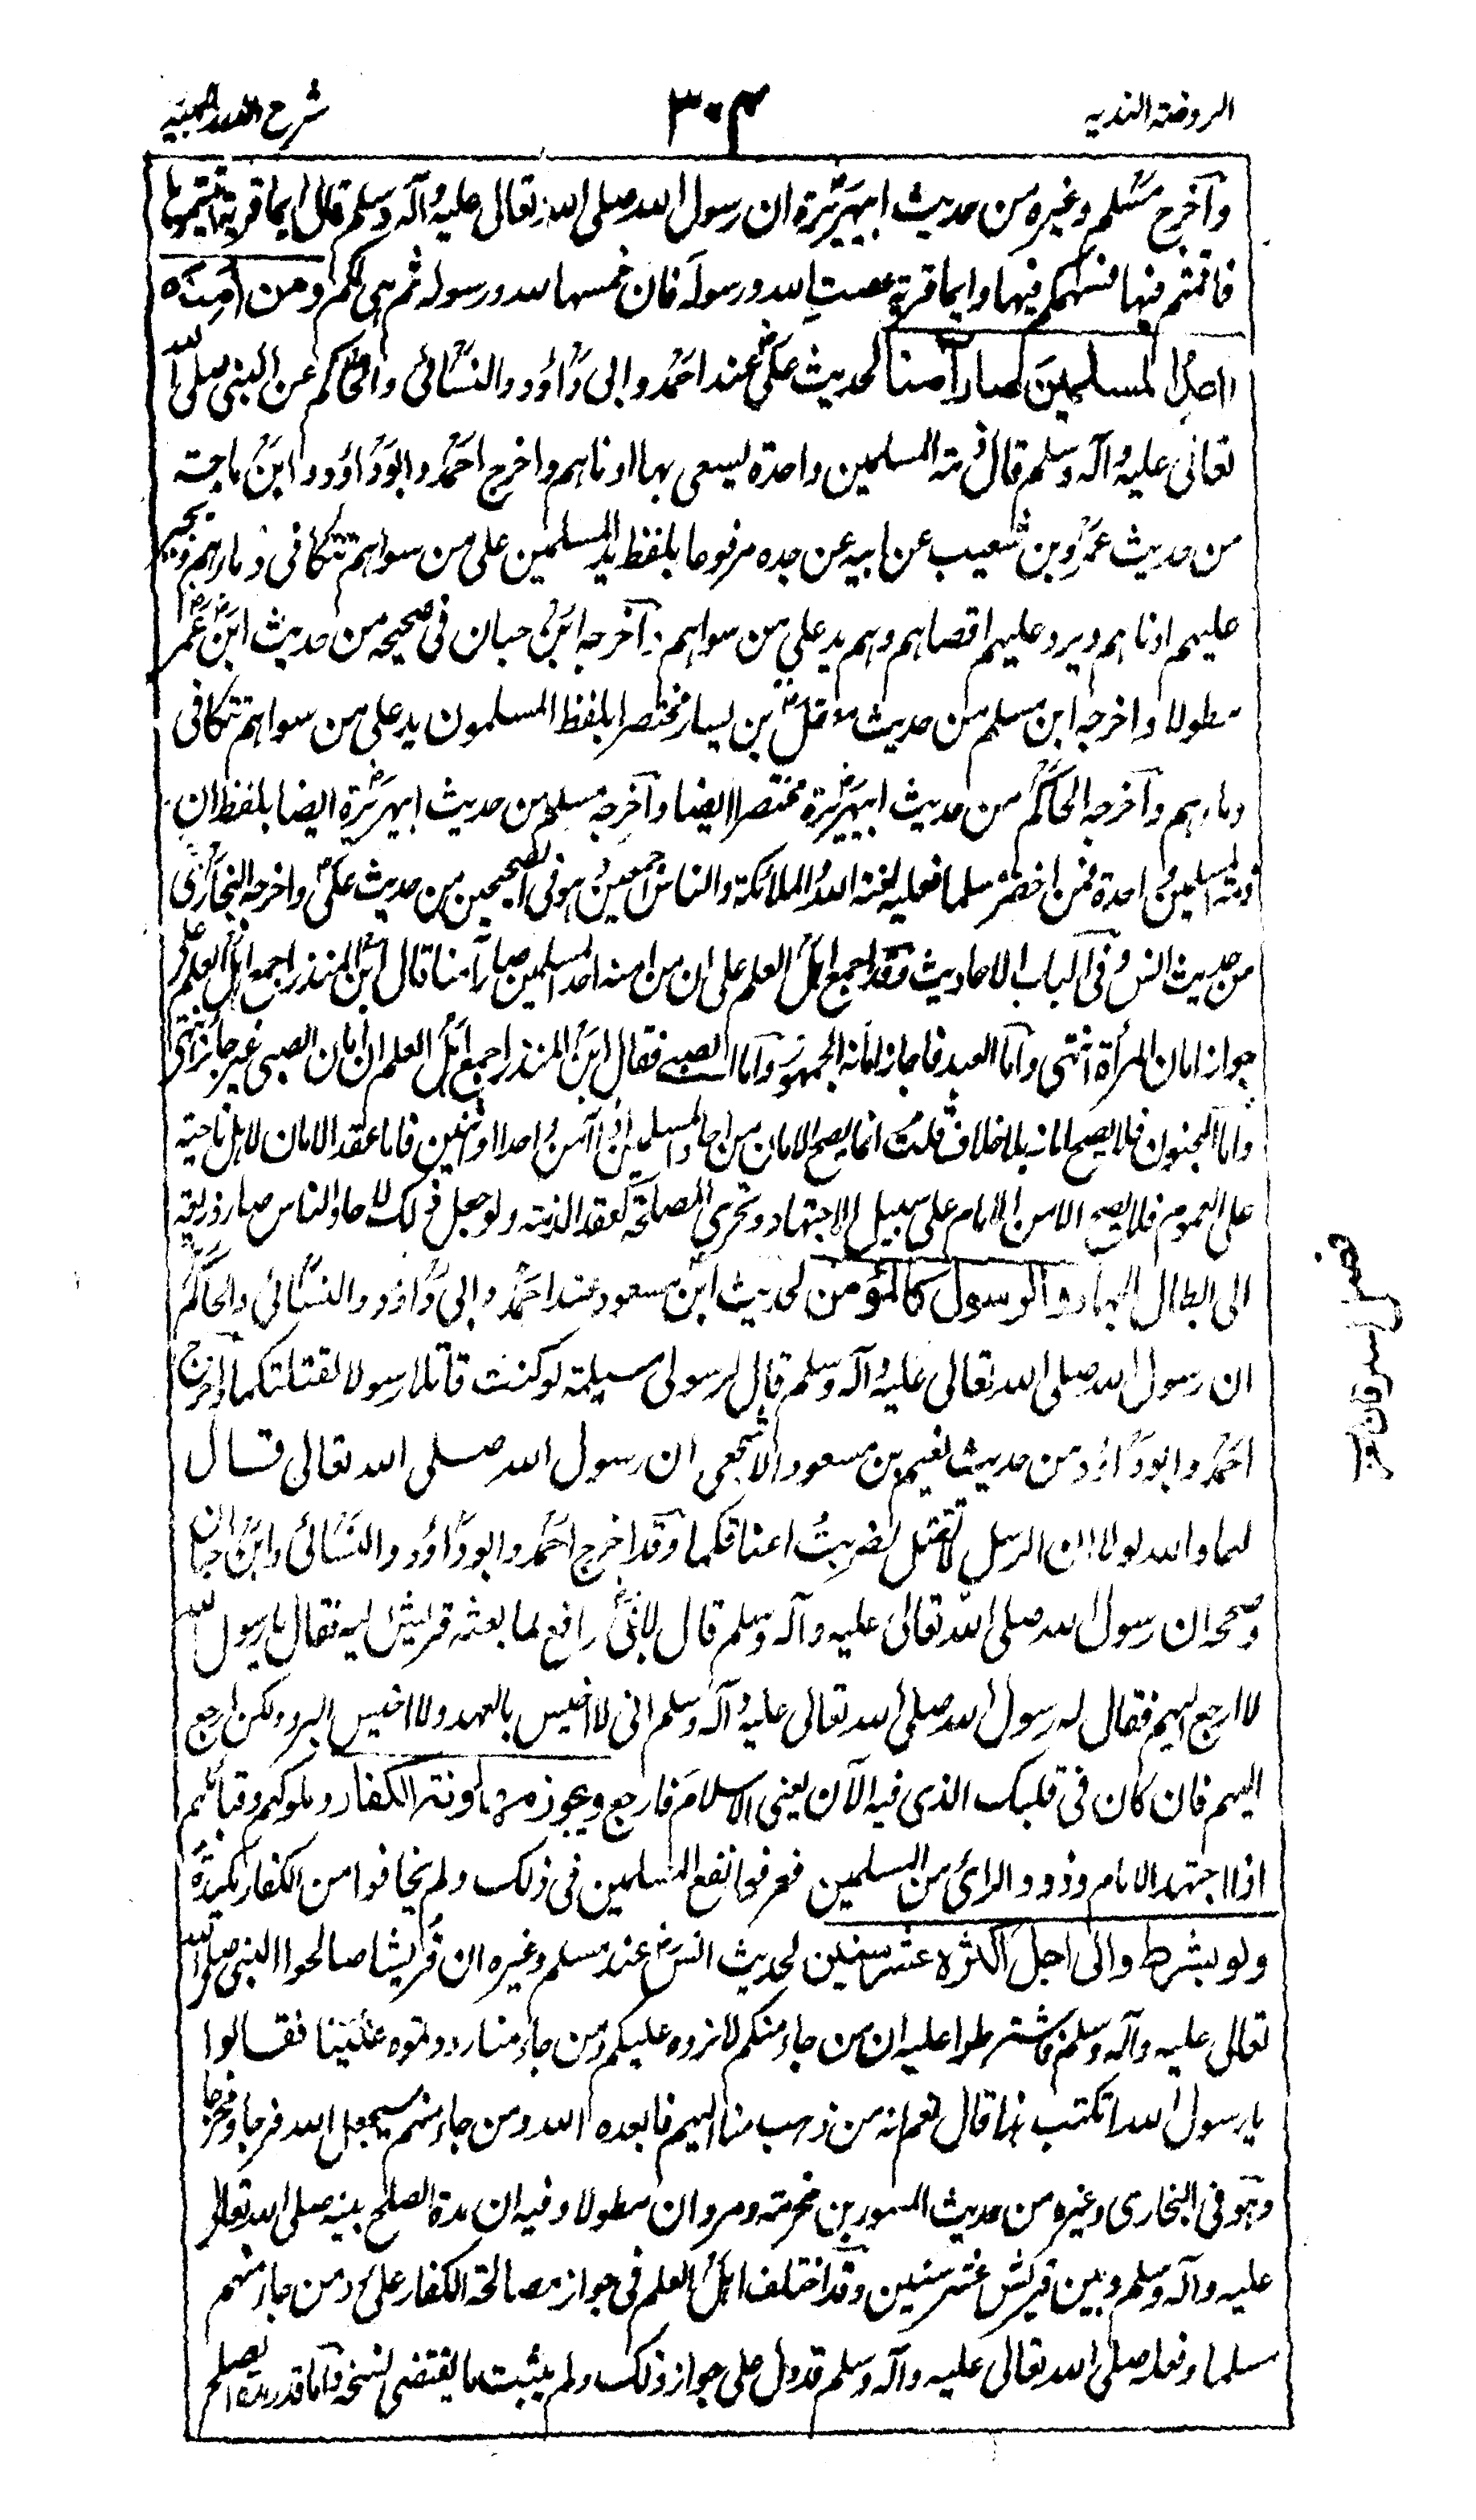 الروضة الندية
٣٠٤
شرح الدرر البهية
وأخرج مسلم وغيره من حديث ابيهريرة ان رسول الله صلى الله تعالى عليه وآله وسلم قال ايما قرية اتيتموها
فاقمتم فيها فسهمكم فيها وايما قرية عصت الله ورسوله فان خمسها لله ورسوله ثم هى لكم ومن امنه
احد المسلمين صار آمنا لحديث على عند احمد وابى داؤد والنسائى والحاكم عن النبى صلى الله
تعالى عليه وآله وسلم قال ذمة المسلمين واحدة يسعى بها ادناهم واخرج احمد وابو داؤد وابن ماجة
من حديث عمرو بن شعيب عن ابيه عن جده مرفوعا بلفظ يد المسلمين على من سواهم تتكافى دماؤهم ويجير
عليهم ادناهم ويرد عليهم اقصاهم وهم يد على من سواهم وأخرجه ابن حبان فى صحيحه من حديث ابن عمر
مطولا واخرجه ابن مسلم من حديث معقل بن يسار مختصرا بلفظ المسلمون يد على من سواهم تتكافى
دماؤهم وآخرجه الحاكم من حديث ابيهريرة مختصرا ايضا وآخرجه مسلم من حديث ابيهريرة ايضا بلفظ ان
ذمة المسلمين واحدة فمن اخفر مسلما فعليه لعنة الله والملائكة والناس اجمعين وهو فى الصحيحين من حديث على واخرجه البخارى
من حديث انس وفى الباب الاحاديث وقد اجمع اهل العلم على ان من امنه احد المسلمين صار آمنا قال ابن المنذر اجمع اهل العلم على
جواز امان المرأة انتهى وآما العبد فاجاز امانه الجمهور وآما الصبى فقال ابن المنذر اجمع اهل العلم ان امان الصبى غير جائز انتهى
وآما المجنون فلا يصح امانه بلا خلاف قلت انما يصح الامان من احاد المسلمين اذا آمن واحدا او اثنين فاما عقد الامان لاهل ناحية
على العموم فلا يصح الا من الامام على سبيل الاجتهاد وتحرى المصلحة كعقد الذمة ولو جعل ذلك لاحاد الناس صار ذريعة
الى ابطال الجهاد والرسول كالمؤمن لحديث ابن مسعود عند احمد وابى داؤد والنسائى والحاكم
ان رسول الله صلى الله تعالى عليه وآله وسلم قال لرسولى مسيلمة لوكنت قاتلا رسولا لقتلتكما وآخرج
احمد وابو داؤد من حديث نعيم بن مسعود الاشجعى ان رسول الله صلى الله تعالى قال
لهما والله لولا ان الرسل لا تقتل لضربت اعناقكما وقد اخرج احمد وابو داؤد والنسائى وابن حبان
وصححه ان رسول الله صلى الله تعالى عليه وآله وسلم قال لابى رافع لما بعثه قريش اليه فقال يا رسول الله
لا ارجع اليهم فقال له رسول الله صلى الله تعالى عليه وآله وسلم انى لا اخيس بالعهد ولا احبس البرد ولكن ارجع
اليهم فان كان فى قلبك الذى فيه الآن يعنى الاسلام فارجع ويجوز مهادنة الكفار وملوكهم وقبائلهم
اذا اجتهد الامام وذوو الرائ من المسلمين فعرفوا نفع المسلمين فى ذلك ولم يخافوا من الكفار مكيدة
ولو بشرط والى اجل اكثره عشر سنين لحديث انس عند مسلم وغيره ان قريشا صالحوا النبى صلى الله
تعالى عليه وآله وسلم فاشترطوا عليه ان من جاء منكم لا نرده عليكم ومن جاء منا رددتموه علينا فقالوا
يا رسول الله اتكتب هذا قال نعم انه من ذهب منا اليهم فابعده الله ومن جاء منهم سيجعل الله فرجا ومخرجا
وهو فى البخارى وغيره من حديث المسور بن مخرمة ومروان مطولا وفيه ان مدة الصلح بينه صلى الله تعالى
عليه وآله وسلم وبين قريش عشر سنين وقد اختلف اهل العلم فى جواز مصالحة الكفار على رد من جاء منهم
مسلما وفعله صلى الله تعالى عليه وآله وسلم قد دل على جواز ذلك ولم يثبت ما يقتضى نسخه وآما قدر مدة الصلح